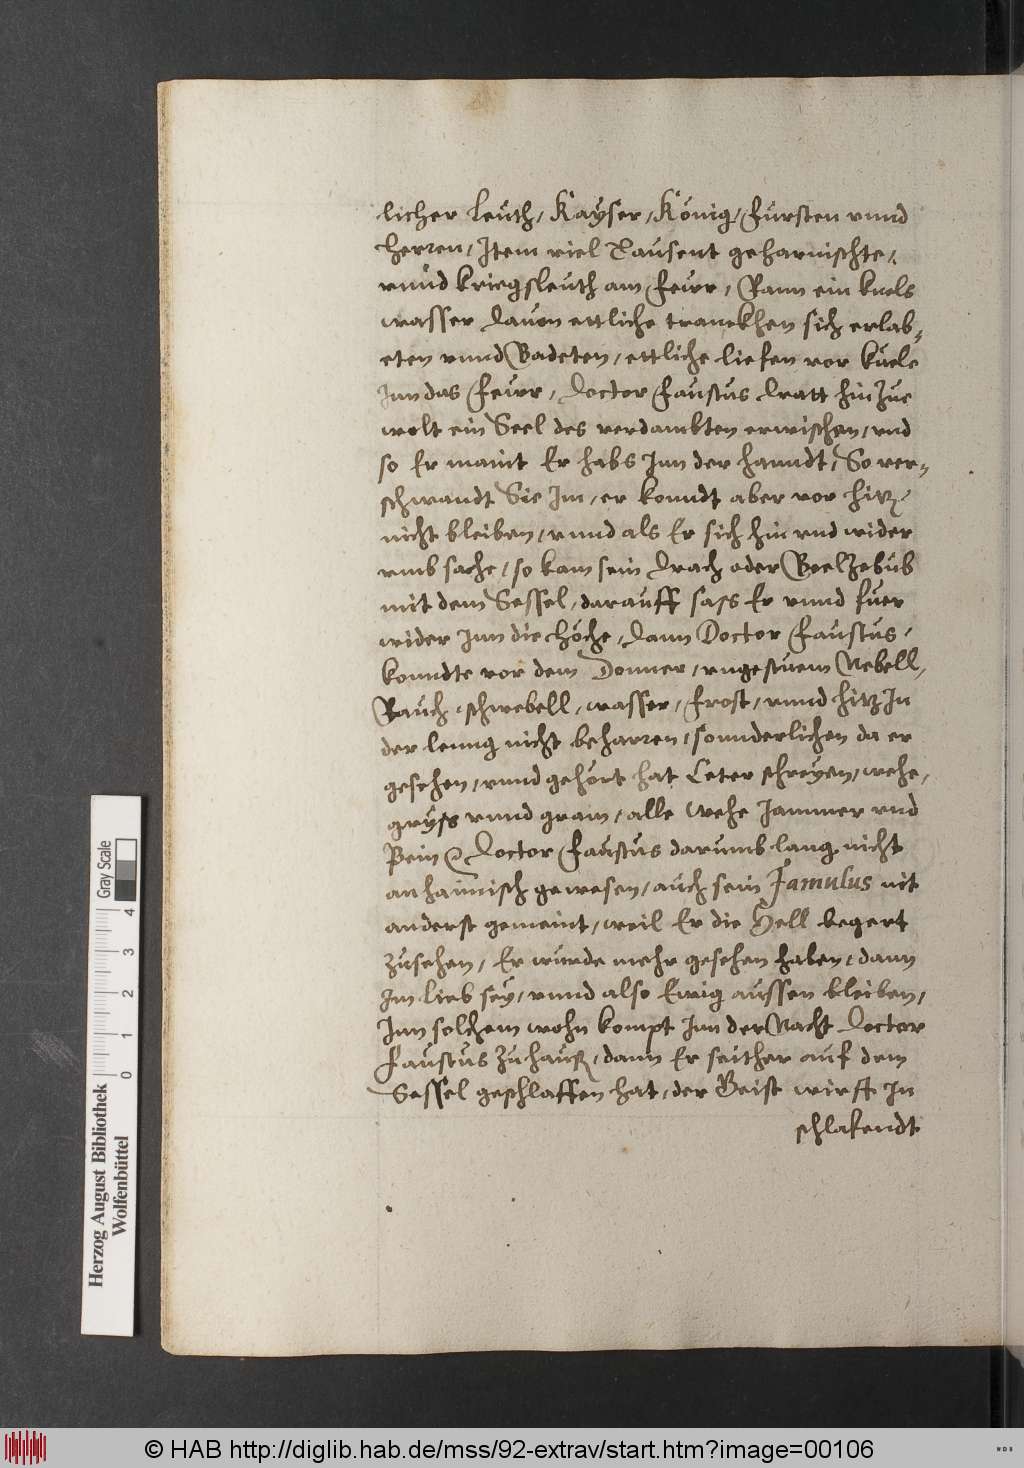 licher Leuth, Kayser, König, Fürsten vnnd
Herren, Item viel Tausent geharnischte,
vnnd kriegsleuth am Fewr, Rann ein kuels
wasser dauon ettliche tranckhen sich erlab-
eten vnnd Badeten, ettliche liefen vor kuele
Inn das Fewr, Doctor Faustus dratt hinzue
wolt ein Seel des verdambten erwischen, vnd
so Er maint Er habs Inn der hanndt, So ver-
schwandt Sie Im, er konndt aber vor hitz
nicht bleiben, vnnd als Er sich hin vnd wider
vmb sache, so kam sein Drach oder Beelzebub
mit dem Sessel, darauff sass Er vnnd fuer
wider Inn die Höche, dann Doctor Faustus,
konndte vor dem Donner, vngestuem Nebell,
Rauch, schwebell, wasser, Frost, vnnd hitz In
der leung nicht beharren, sonnderlichen da er
gesehen, vnnd gehört hat Ceter schreyen, wehe,
gryss vnnd gram, alle wehe Jammer vnd
Pein Doctor Faustus darumb lang nicht
anhaimisch gewesen, auch sein Famulus nit
anderst gemeint, weil Er die Hell begert
zusehen, Er wurde mehr gesehen haben, dann
Im lieb sey, vnnd also Ewig aussen bleiben,
Inn solchem wohn kompt Inn der Nacht Doctor
Faustus zu hauß, dann Er seither auf dem
Sessel geschlaffen hat, der Geist wirfft In
schlafendt
Gray Scale
0 1 2 3 4
Herzog August Bibliothek
Wolfenbüttel
© HAB http://diglib.hab.de/mss/92-extrav/start.htm?image=00106